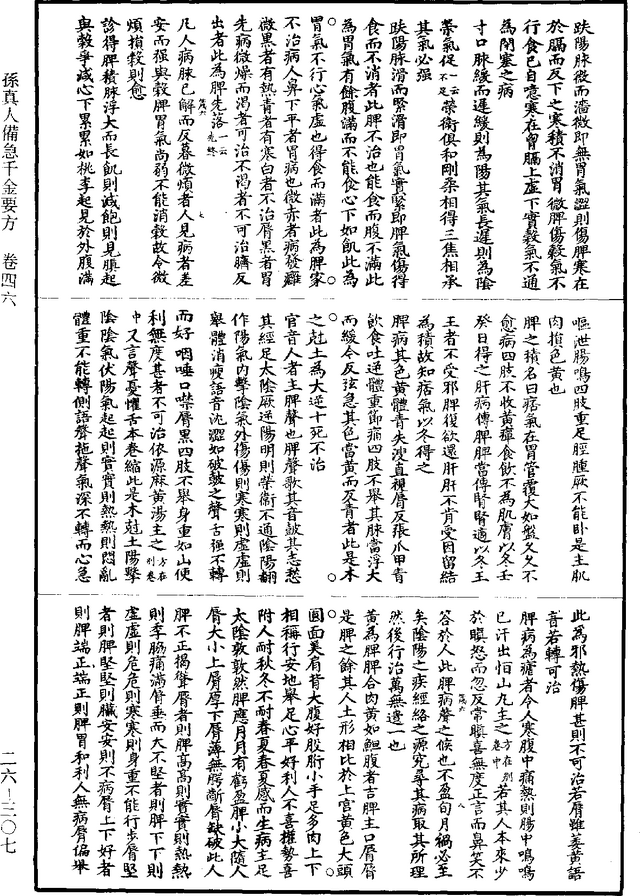 趺陽脉微而濇微即無胃氣澀則傷脾寒在
於膈而反下之寒積不消胃微脾傷穀氣不
行食已自噫寒在胷膈上虛下實穀氣不通
為閇塞之病
寸口脉緩而遲緩則為陽其氣長遲則為陰
榮氣促一云不足榮衛俱和剛柔相得三焦相承
其氣必强
趺陽脉滑而緊滑即胃氣實緊即脾氣傷得
食而不消者此脾不治也能食而腹不滿此
為胃氣有餘腹滿而不能食心下如飢此為
胃氣不行心氣虛也得食而滿者此為脾家
不治病人鼻下平者胃病也微赤者病發癰
微黑者有熱青者有寒白者不治唇黑者胃
先病微燥而渴者可治不渴者不可治臍反
出者此為脾先落一云先終
凡人病脉已解而反暮微煩者人見病者差
安而强與穀脾胃氣尚弱不能消穀故令微
煩損穀則愈
診得脾積脉浮大而長飢則減飽則見䐜起
與穀爭減心下累累如桃李起見於外腹滿
嘔泄腸鳴四肢重足脛腫厥不能卧是主肌
肉損色黄也
脾之積名曰痞氣在胃管覆大如盤久久不
愈病四肢不收黄癉食飲不為肌膚以冬壬
癸日得之肝病傳脾脾當傳腎腎適以冬王
王者不受邪脾復欲還肝肝不肯受因留結
為積故知痞氣以冬得之
脾病其色黄體青失溲直視唇反張爪甲青
飲食吐逆體重節痛四肢不舉其脉當浮大
而緩今反弦急其色當黄而反青者此是木
之尅土為大逆十死不治
宫音人者主脾聲也脾聲歌其音鼓其志愁
其經足太陰厥逆陽明則榮衛不通陰陽翻
作陽氣内擊陰氣外傷傷則寒寒則虛虛則
舉體消瘦語音沈澀如破鼓之聲舌强不轉
而好咽唾口噤唇黑四肢不舉身重如山便
利無度甚者不可治依源麻黄湯主之方在别卷
中又言聲憂懼舌本卷縮此是木尅土陽擊
陰陰氣伏陽氣起起則實實則熱熱則悶亂
體重不能轉側語聲拖聲氣深不轉而心急
此為邪熱傷脾甚則不可治若唇雖萎黄語
音若轉可治
脾病為瘧者令人寒腹中痛熱則腸中鳴鳴
已汗出恒山丸主之方在别卷中若其人本來少
於瞋怒而忽反常瞋喜無度正言而鼻笑不
答於人此脾病聲之候也不盈旬月禍必至
矣陰陽之疾經絡之源究尋其病取其所理
然後行治萬無遺一也
黄為脾脾合肉黄如鱓腹者吉脾主口唇唇
是脾之餘其人土形相比於上宫黄色大頭
圓面美肩背大腹好股胻小手足多肉上下
相稱行安地舉足心平好利人不喜權勢喜
附人耐秋冬不耐春夏春夏感而生病主足
太陰敦敦然脾應月月有虧盈脾小大隨人
唇大小上唇厚下唇薄無腭齗唇缺破此人
脾不正揭聳唇者則脾高高則實實則熱熱
則季脇痛滿唇垂而大不堅者則脾下下則
虛虛則危危則寒寒則身重不能行步唇堅
者則脾堅堅則臟安安則不病唇上下好者
則脾端正端正則脾胃和利人無病唇偏舉
孫真人備急千金要方　卷四六
二六-三〇七